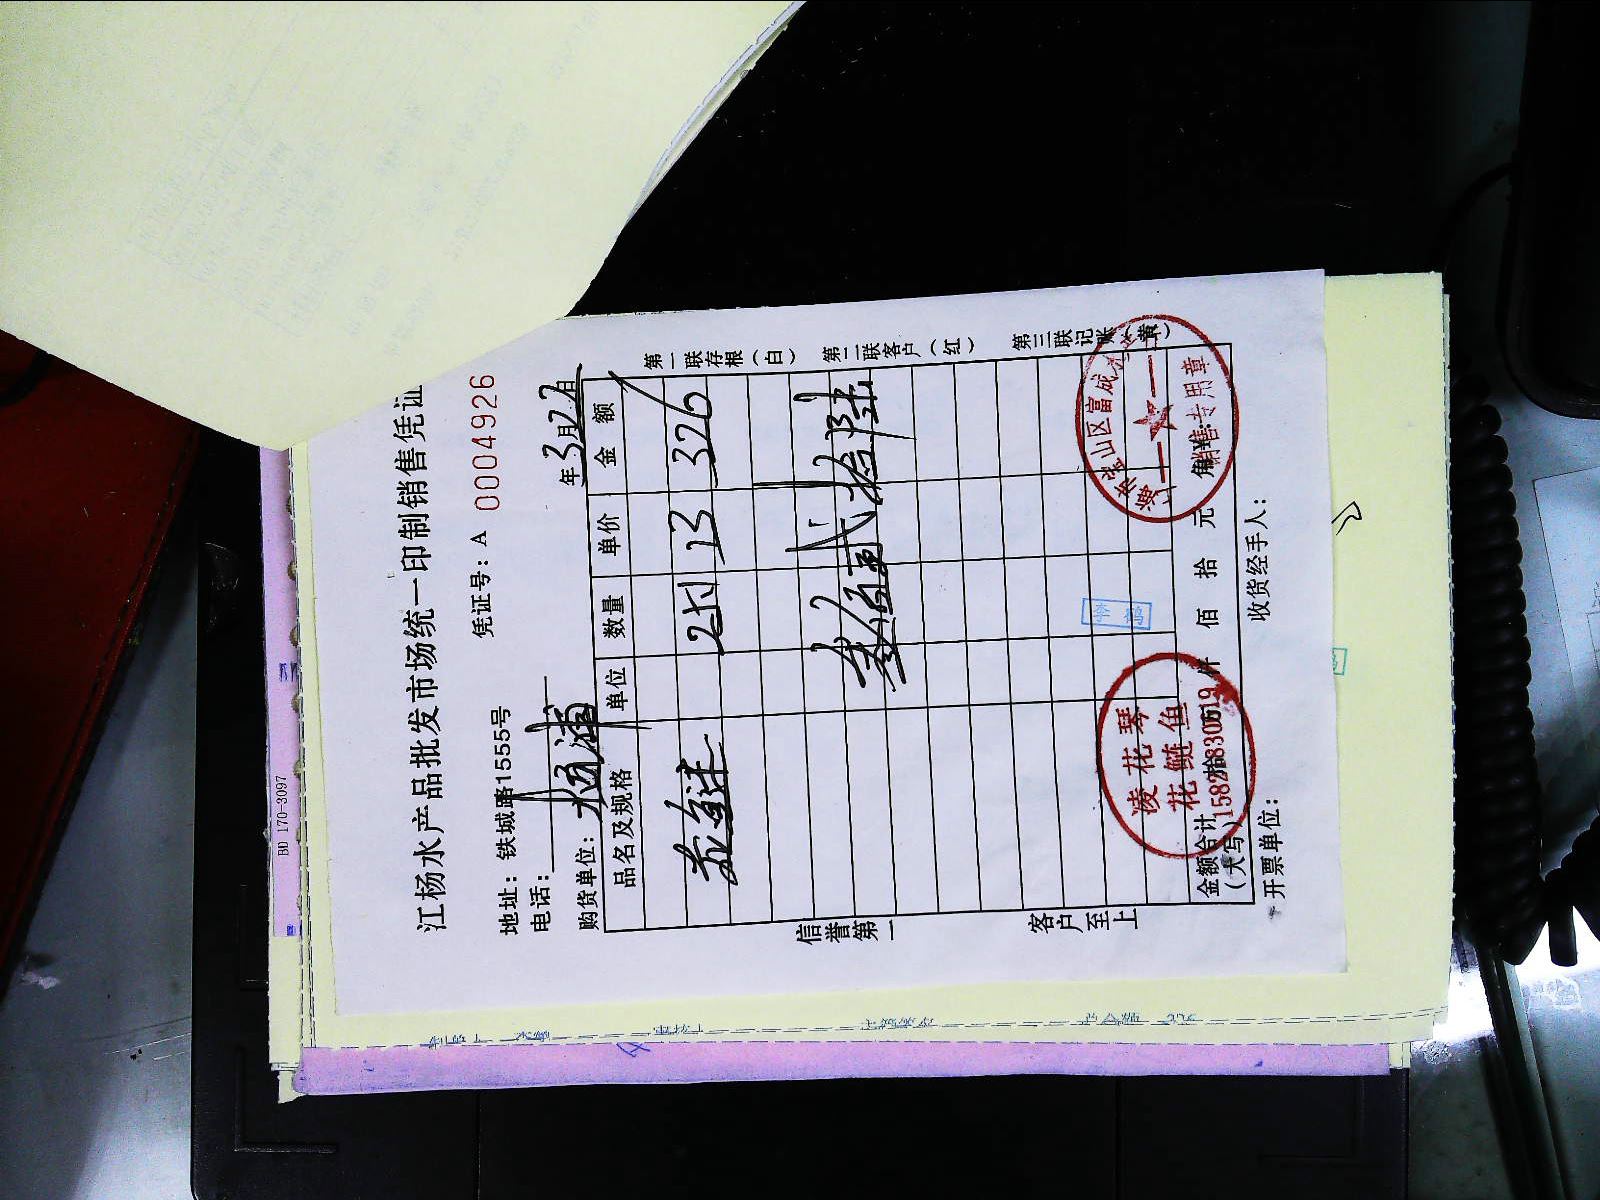 江杨水产品批发市场统一印制销售凭证
地址：铁城路1555号
凭证号：A 0004926
电话：
购货单位：杨浦
年3月22日
品名及规格 单位 数量 单价 金额
花鲢 25.1 13 326
叁佰贰拾陆
李鹞
金额合计（大写） 拾 万 仟 佰 拾 元 角
开票单位：
收货经手人：
信誉第一
客户至上
第一联存根（白）
第二联客户（红）
第三联记账（黄）
凌花琴
花鲢鱼
山区富成
销售专用章
BD 170-3097